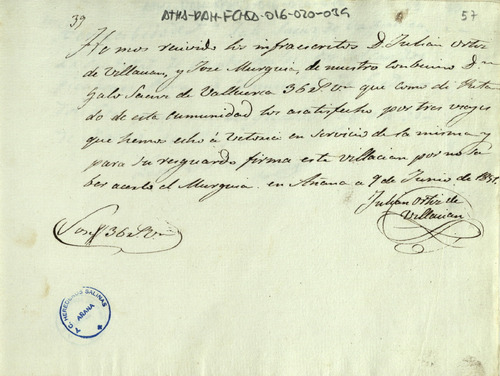 39
ATHA-DAH-FCHSA-016-020-039
57
Hemos recivido los infraescritos D. Julian Ortiz
de Villacian, y Jose Murguia, de nuestro combecino Dn
Galo Saenz de Valluerca 36 rs vn que como diputa
do de esta comunidad los a satisfecho por tres viages
que hemos echo á Vitoria en servicio de la misma y
para su resguardo firma este Villacian por no sa
ber acerlo el Murguia. en Añana a 9 de Junio de
Julian Ortiz de
Villacian
Son 36 rs vn
A. C. HEREDEROS SALINAS
AÑANA